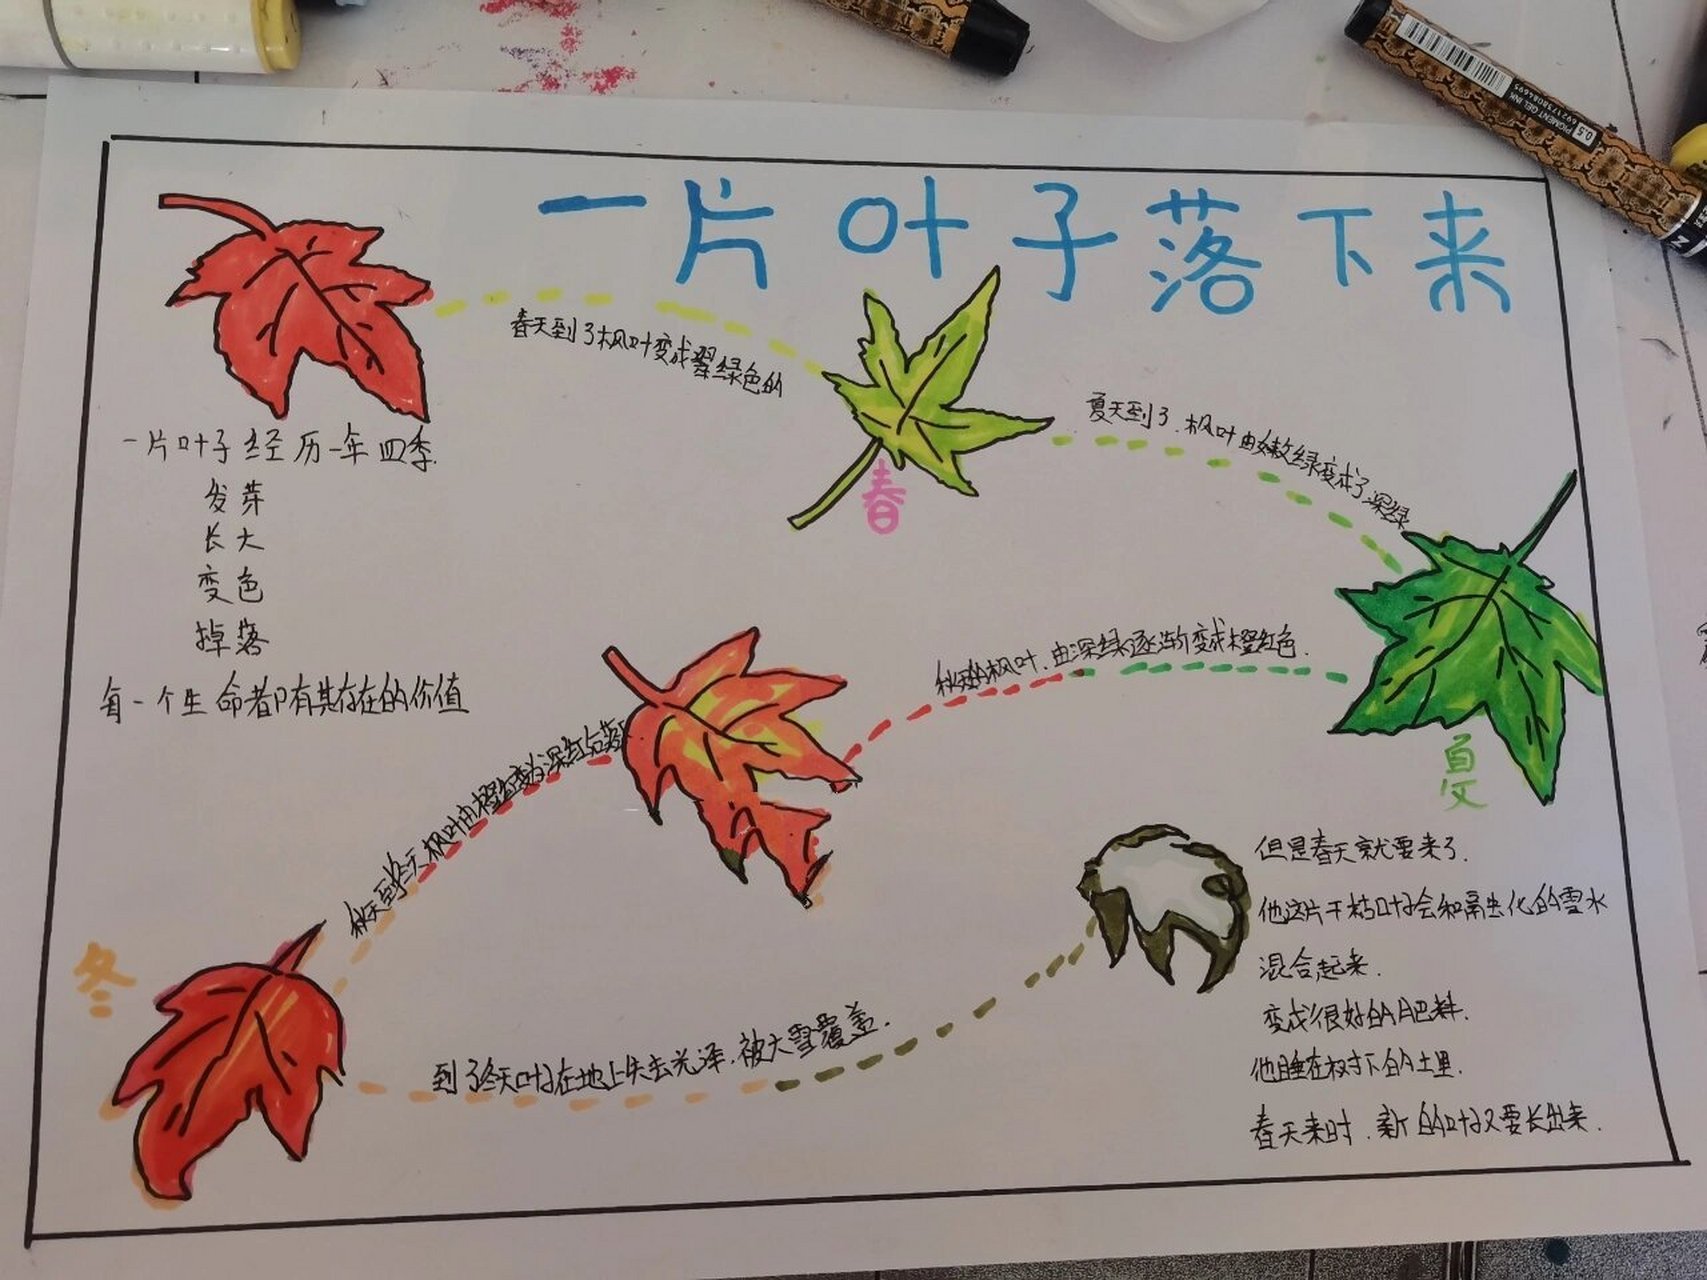 一片叶子落下来
春天到了枫叶变成翠绿色的
一片叶子经历一年四季.
发芽
长大
变色
掉落
每一个生命都有其存在的价值
春
夏天到了.枫叶由嫩绿变成了深绿
夏
秋天的枫叶.由深绿逐渐变成橙红色.
秋天到冬天枫叶由橙红变为深红后落
冬
到了冬天叶子在地上失去光泽.被大雪覆盖.
但是春天就要来了.
他这片干枯叶子会和融化的雪水
混合起来.
变成很好的肥料.
他睡在树下的土里.
春天来时.新的叶子又要长出来.
PIGMENT GEL INK
0.5
6921738084695